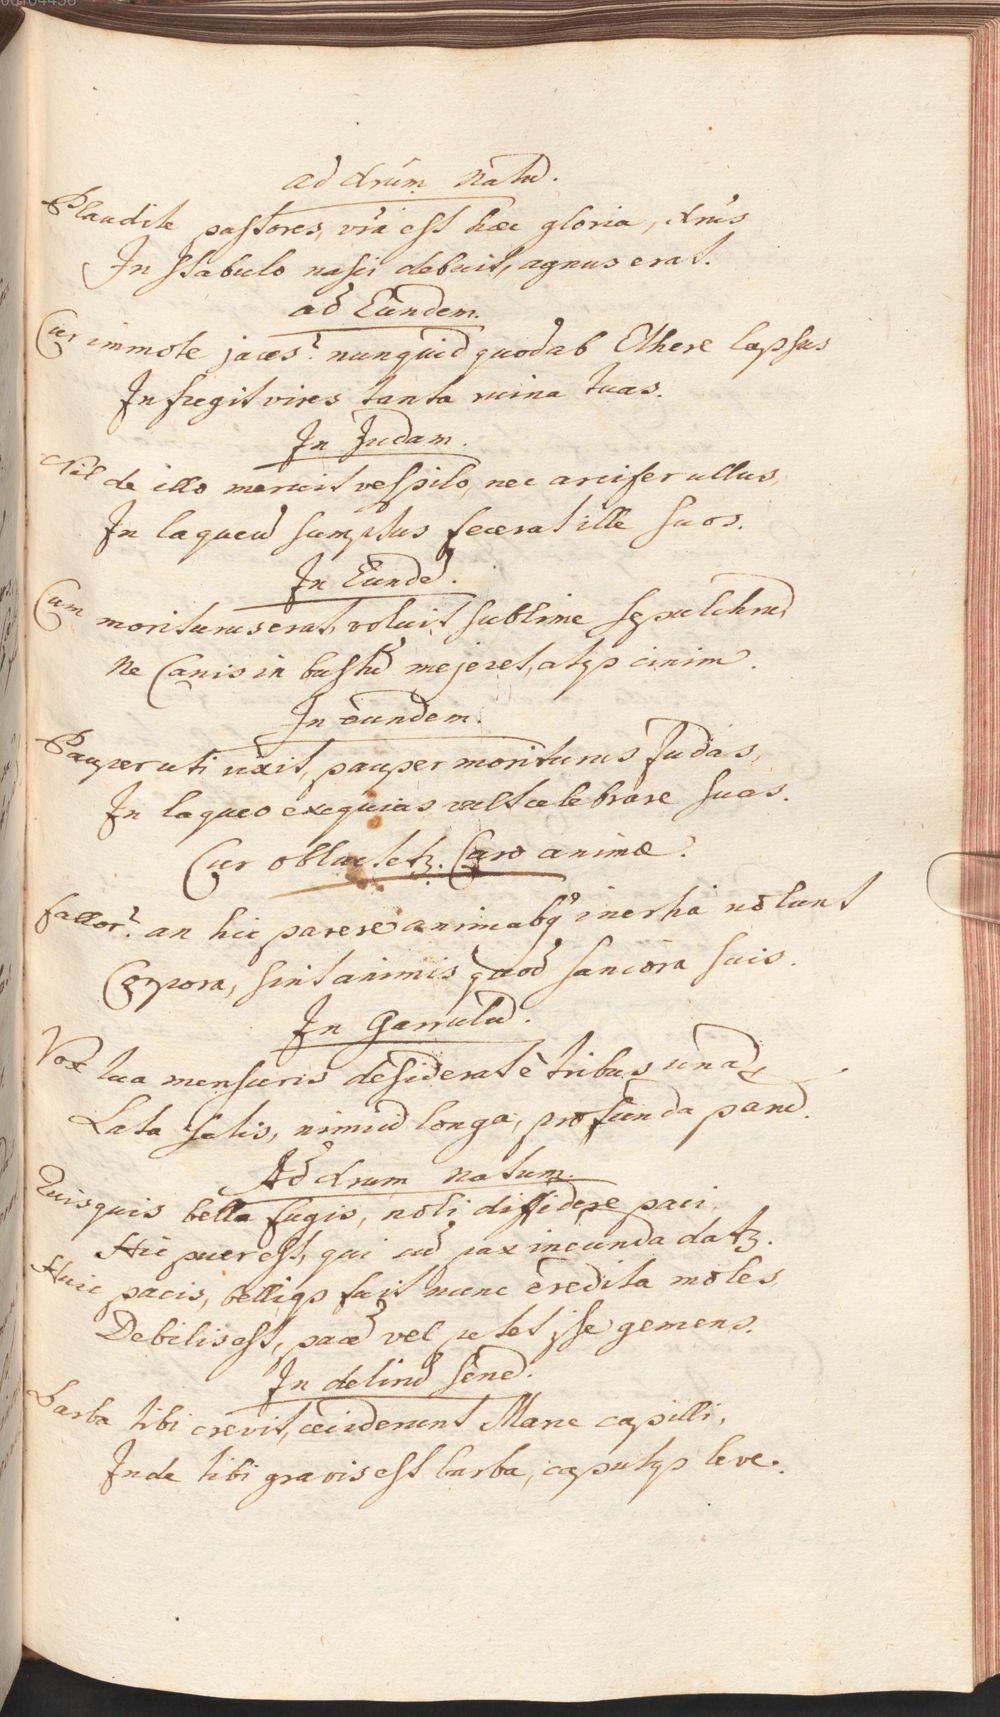 00104436
ad Xrūm Natū.
Plaudite pastores, vrā est hæc gloria, Xrūs
In stabulo nasci debuit, agnus erat.
ad Eūndem.
Cur immote jaces? nunquid quod ab Ethere lapsus
Infregit vires tanta ruina tuas.
In Judam.
Nil de illo meruit vespilo, nec arcifer ullus,
In laqueū sumptus fecerat ille suos.
In Eundē.
Cum moriturus erat, voluit sublime sepulchrū
Ne Canis in bustū mejeret, atqȝ cinim.
In eūndem.
Pauper uti vixit, pauper moriturus Judas,
In laqueo exequias vult celebrare suas.
Cur obluctetȝ. Caro animæ.
fallor? an hic parere animabȝ inertia nolunt
Corpora, sint animis quod saniora suis.
In Garrulū.
Vox tua mensuris desiderat è tribus unā,
Lata satis, nimiū longa, profunda parū.
Ad Xrum natum.
Quisquis bella fugis, noli diffidere paci,
Hic puer est, qui cū pax ineunda datȝ.
Huic pacis, belliqȝ fuit nunc credita moles
Debilis est, pacē vel petet ipse gemens.
In delirū senē.
Barba tibi crevit, ceciderunt Marce capilli,
Inde tibi gravis est barba, caputqȝ leve.